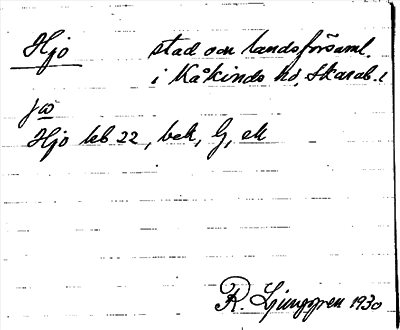 Hjo stad och landsförsaml.
i Kåkinds hd, Skarab. l
Hjo kb 22, bek, G, ek
R. Ljunggren 1930